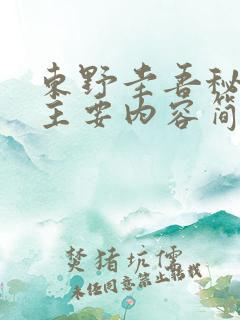 东野圭吾秘
主要内容简
焚猪坑儒
未经同意禁止转载